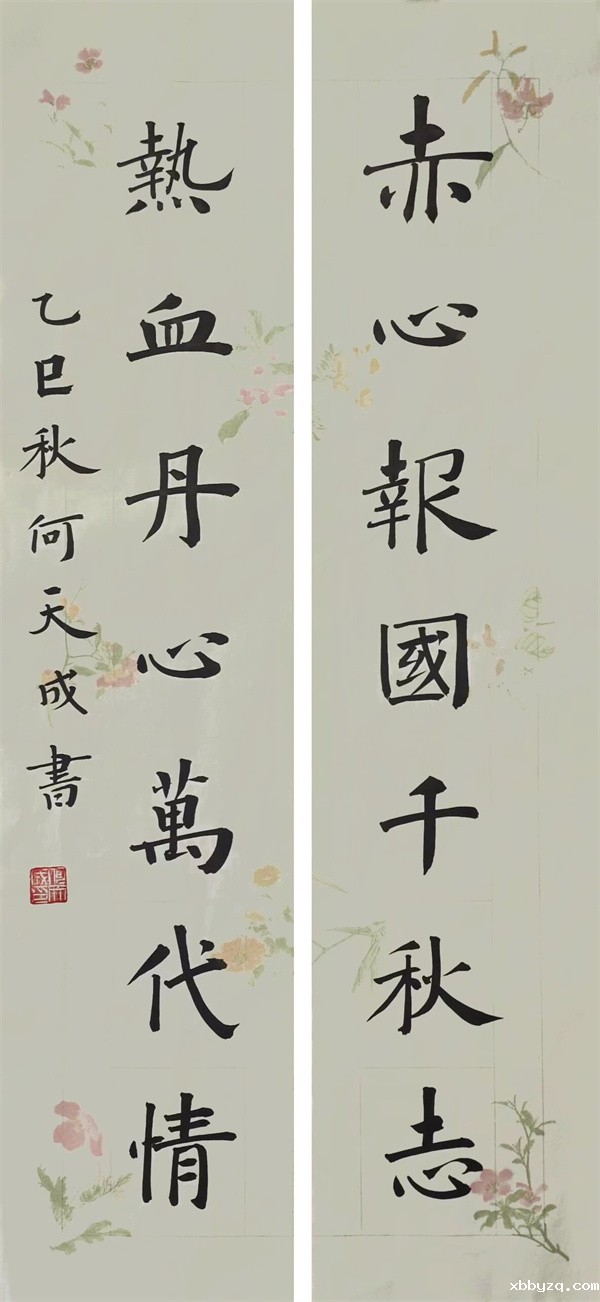 赤心報國千秋志
熱血丹心萬代情
乙巳秋何天成書
xbbyzq.com